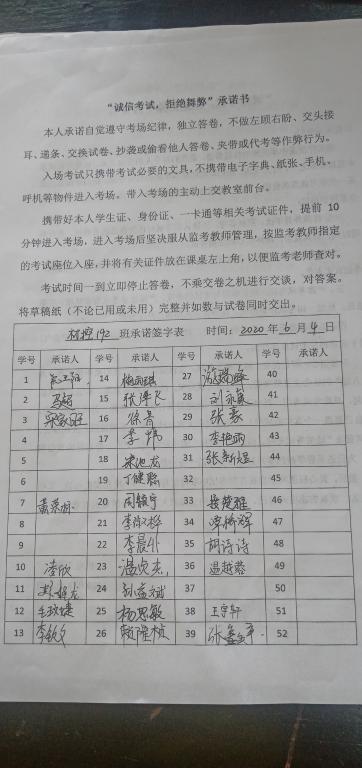 “诚信考试，拒绝舞弊”承诺书
本人承诺自觉遵守考场纪律，独立答卷，不做左顾右盼、交头接
耳、递条、交换试卷、抄袭或偷看他人答卷、夹带或代考等作弊行为。
入场考试只携带考试必要的文具，不携带电子字典、纸张、手机、
呼机等物件进入考场。带入考场的主动上交教室前台。
携带好本人学生证、身份证、一卡通等相关考试证件，提前 10
分钟进入考场，进入考场后坚决服从监考教师管理，按监考教师指定
的考试座位入座，并将有关证件放在课桌左上角，以便监考老师查对。
考试时间一到立即停止答卷，不乘交卷之机进行交谈，对答案。
将草稿纸（不论已用或未用）完整并如数与试卷同时交出。
192 班承诺签字表 时间：2020 年 6 月 4 日
学号 承诺人 学号 承诺人 学号 承诺人 学号 承诺人
1 14 27 40
2 15 28 41
3 16 徐青 29 张豪 42
4 17 李鸿 30 李艳雨 43
5 18 宋池龙 31 44
6 19 丁健聪 32 45
7 20 周颖宁 33 46
8 21 34 47
9 22 李晨外 35 胡诗诗 48
10 凌欣 23 温贞杰 36 温越蓉 49
11 24 37 50
12 25 杨思敏 38 王宫轩 51
13 26 赖隆桢 39 52